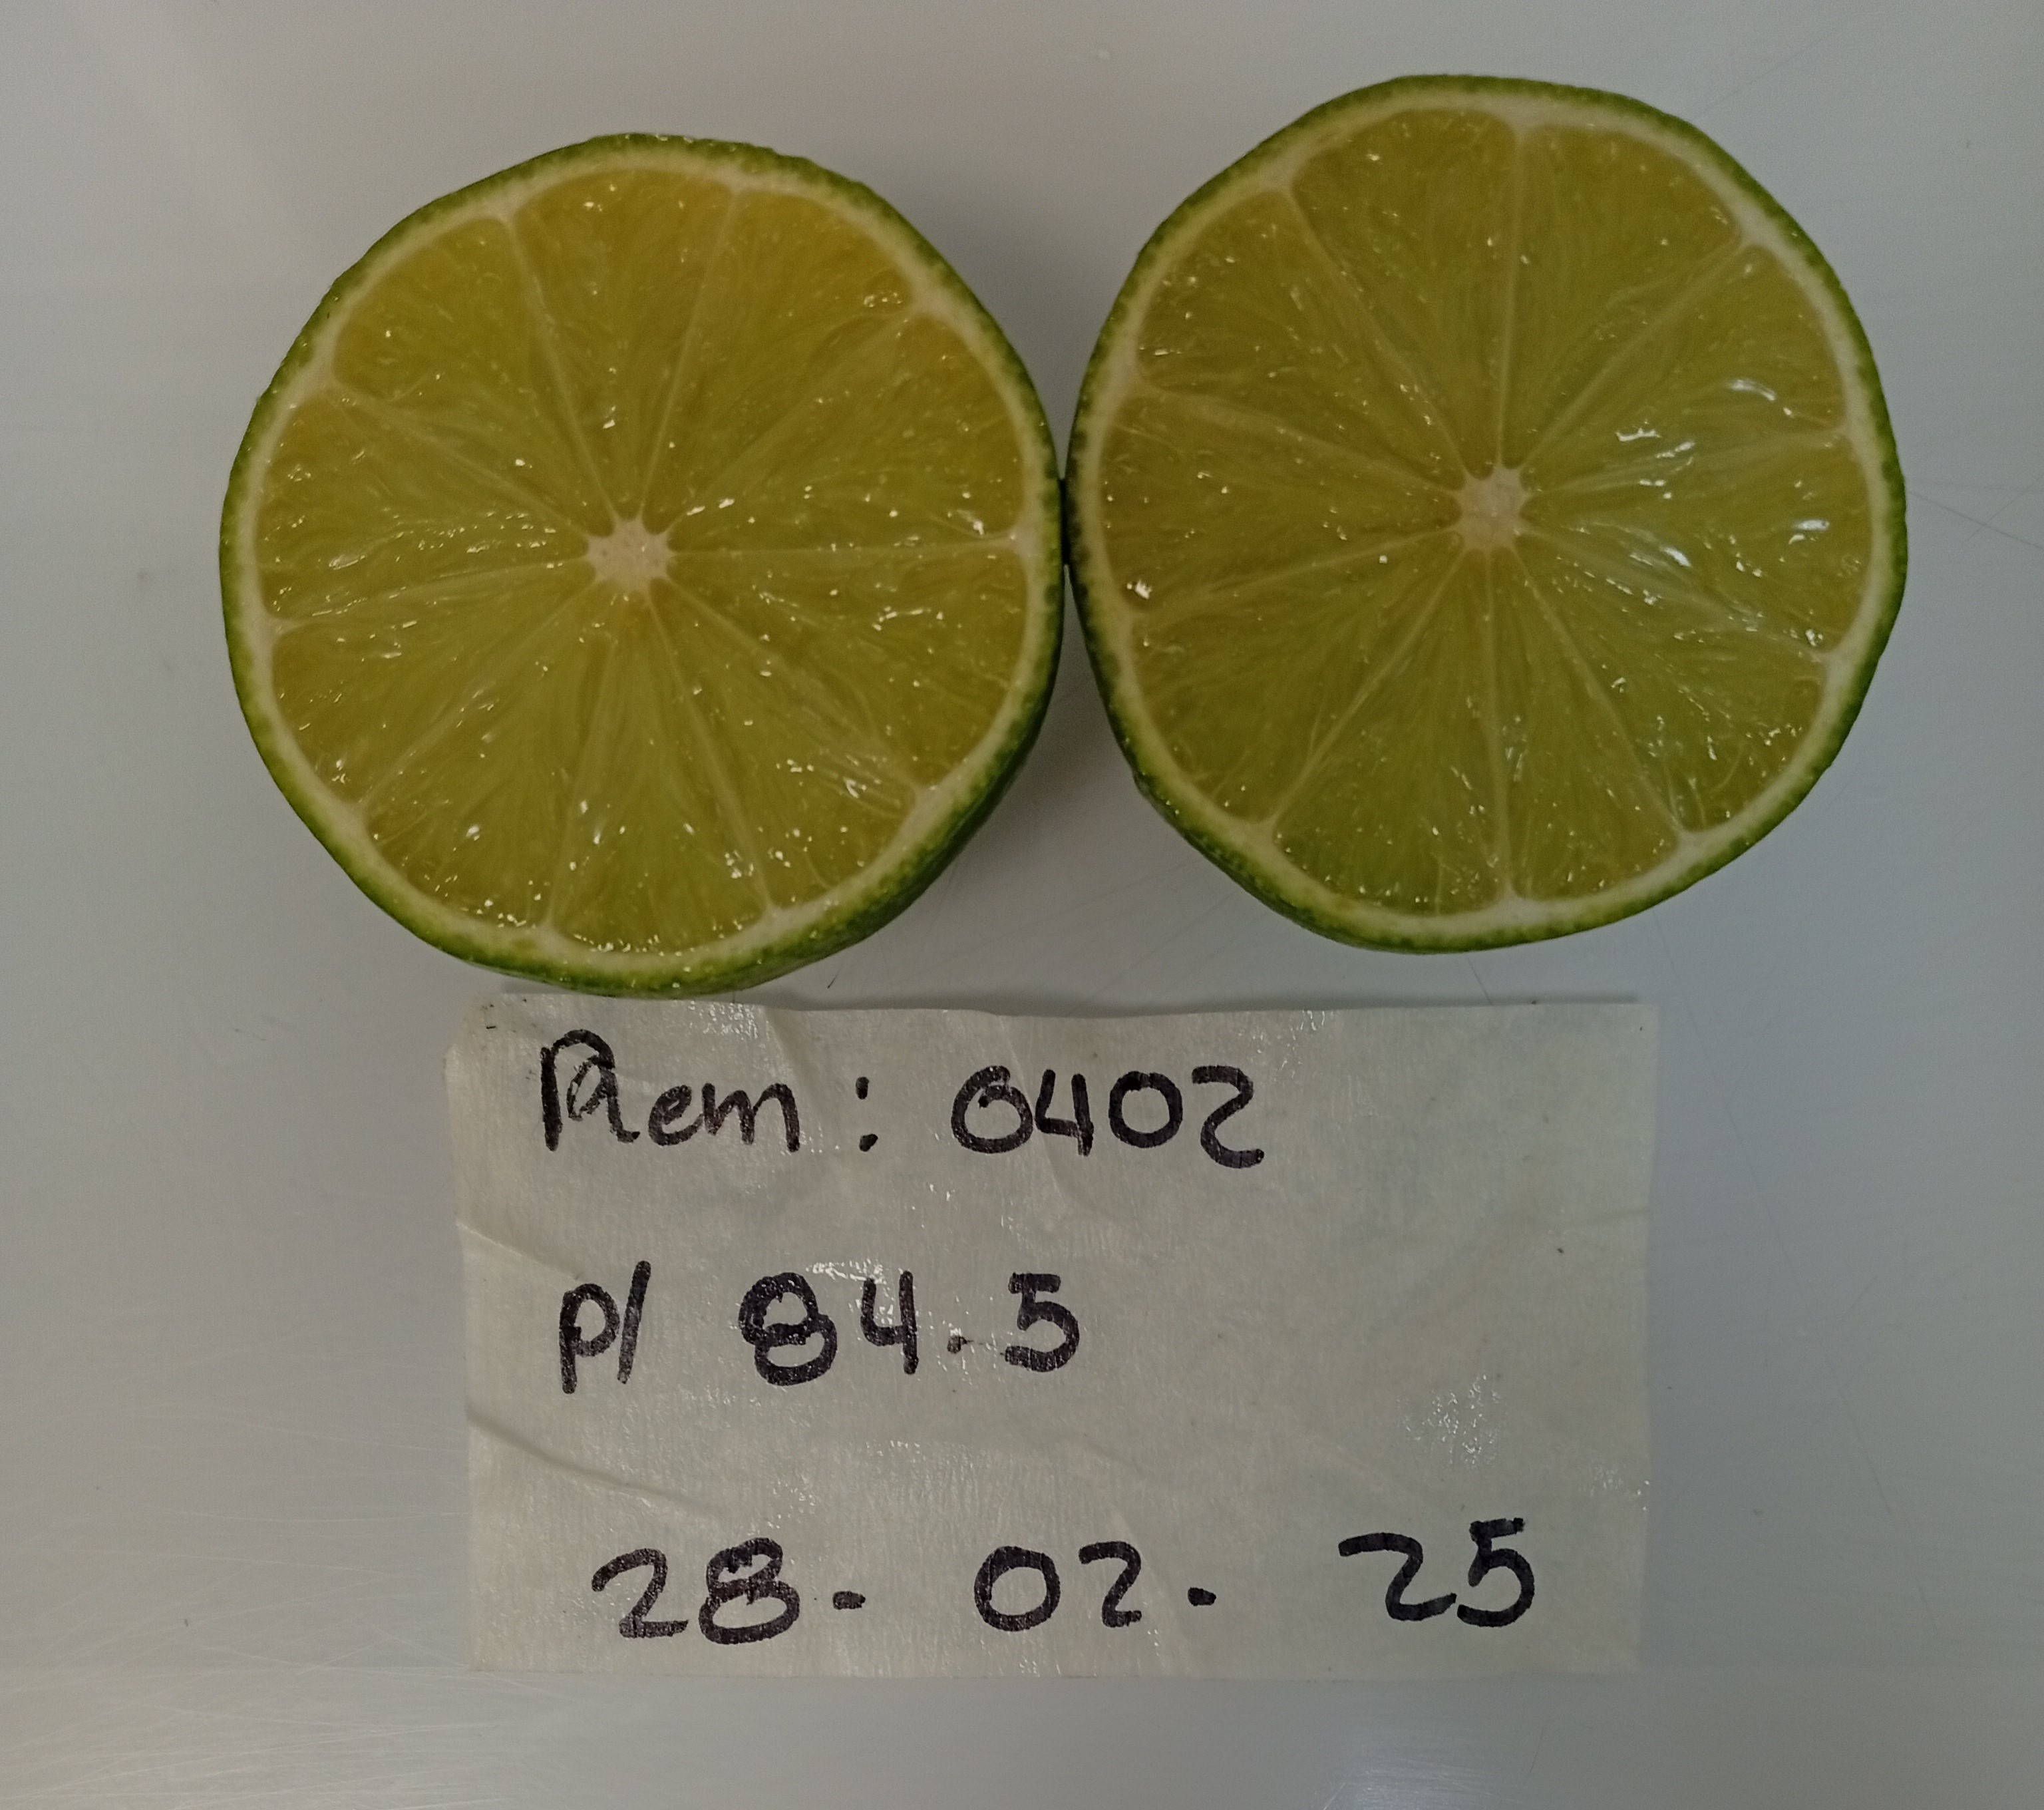 Rem: 0402
P/ 84.5
28. 02. 25